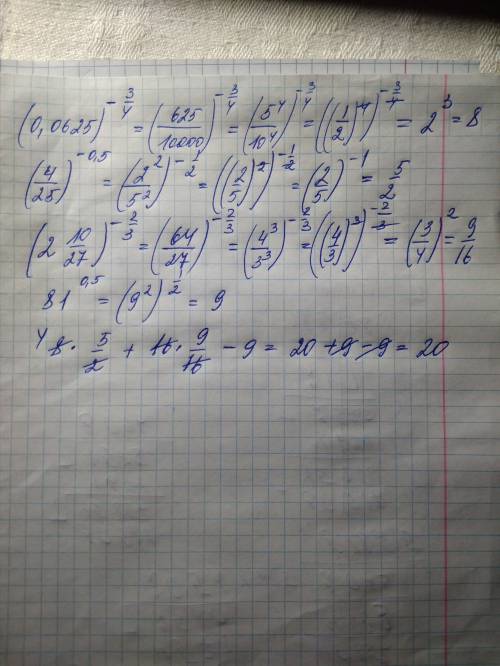 (0,0625)^(-3/4) = (625/10000)^(-3/4) = (5^4/10^4)^(-3/4) = ((1/2)^4)^(-3/4) = 2^3 = 8
(4/25)^(-0,5) = (2^2/5^2)^(-1/2) = ((2/5)^2)^(-1/2) = (2/5)^(-1) = 5/2
(2 10/27)^(-2/3) = (64/27)^(-2/3) = (4^3/3^3)^(-2/3) = ((4/3)^3)^(-2/3) = (3/4)^2 = 9/16
81^(0,5) = (9^2)^(1/2) = 9
4 8 · 5/2 + 16 · 9/16 - 9 = 20 + 9 - 9 = 20